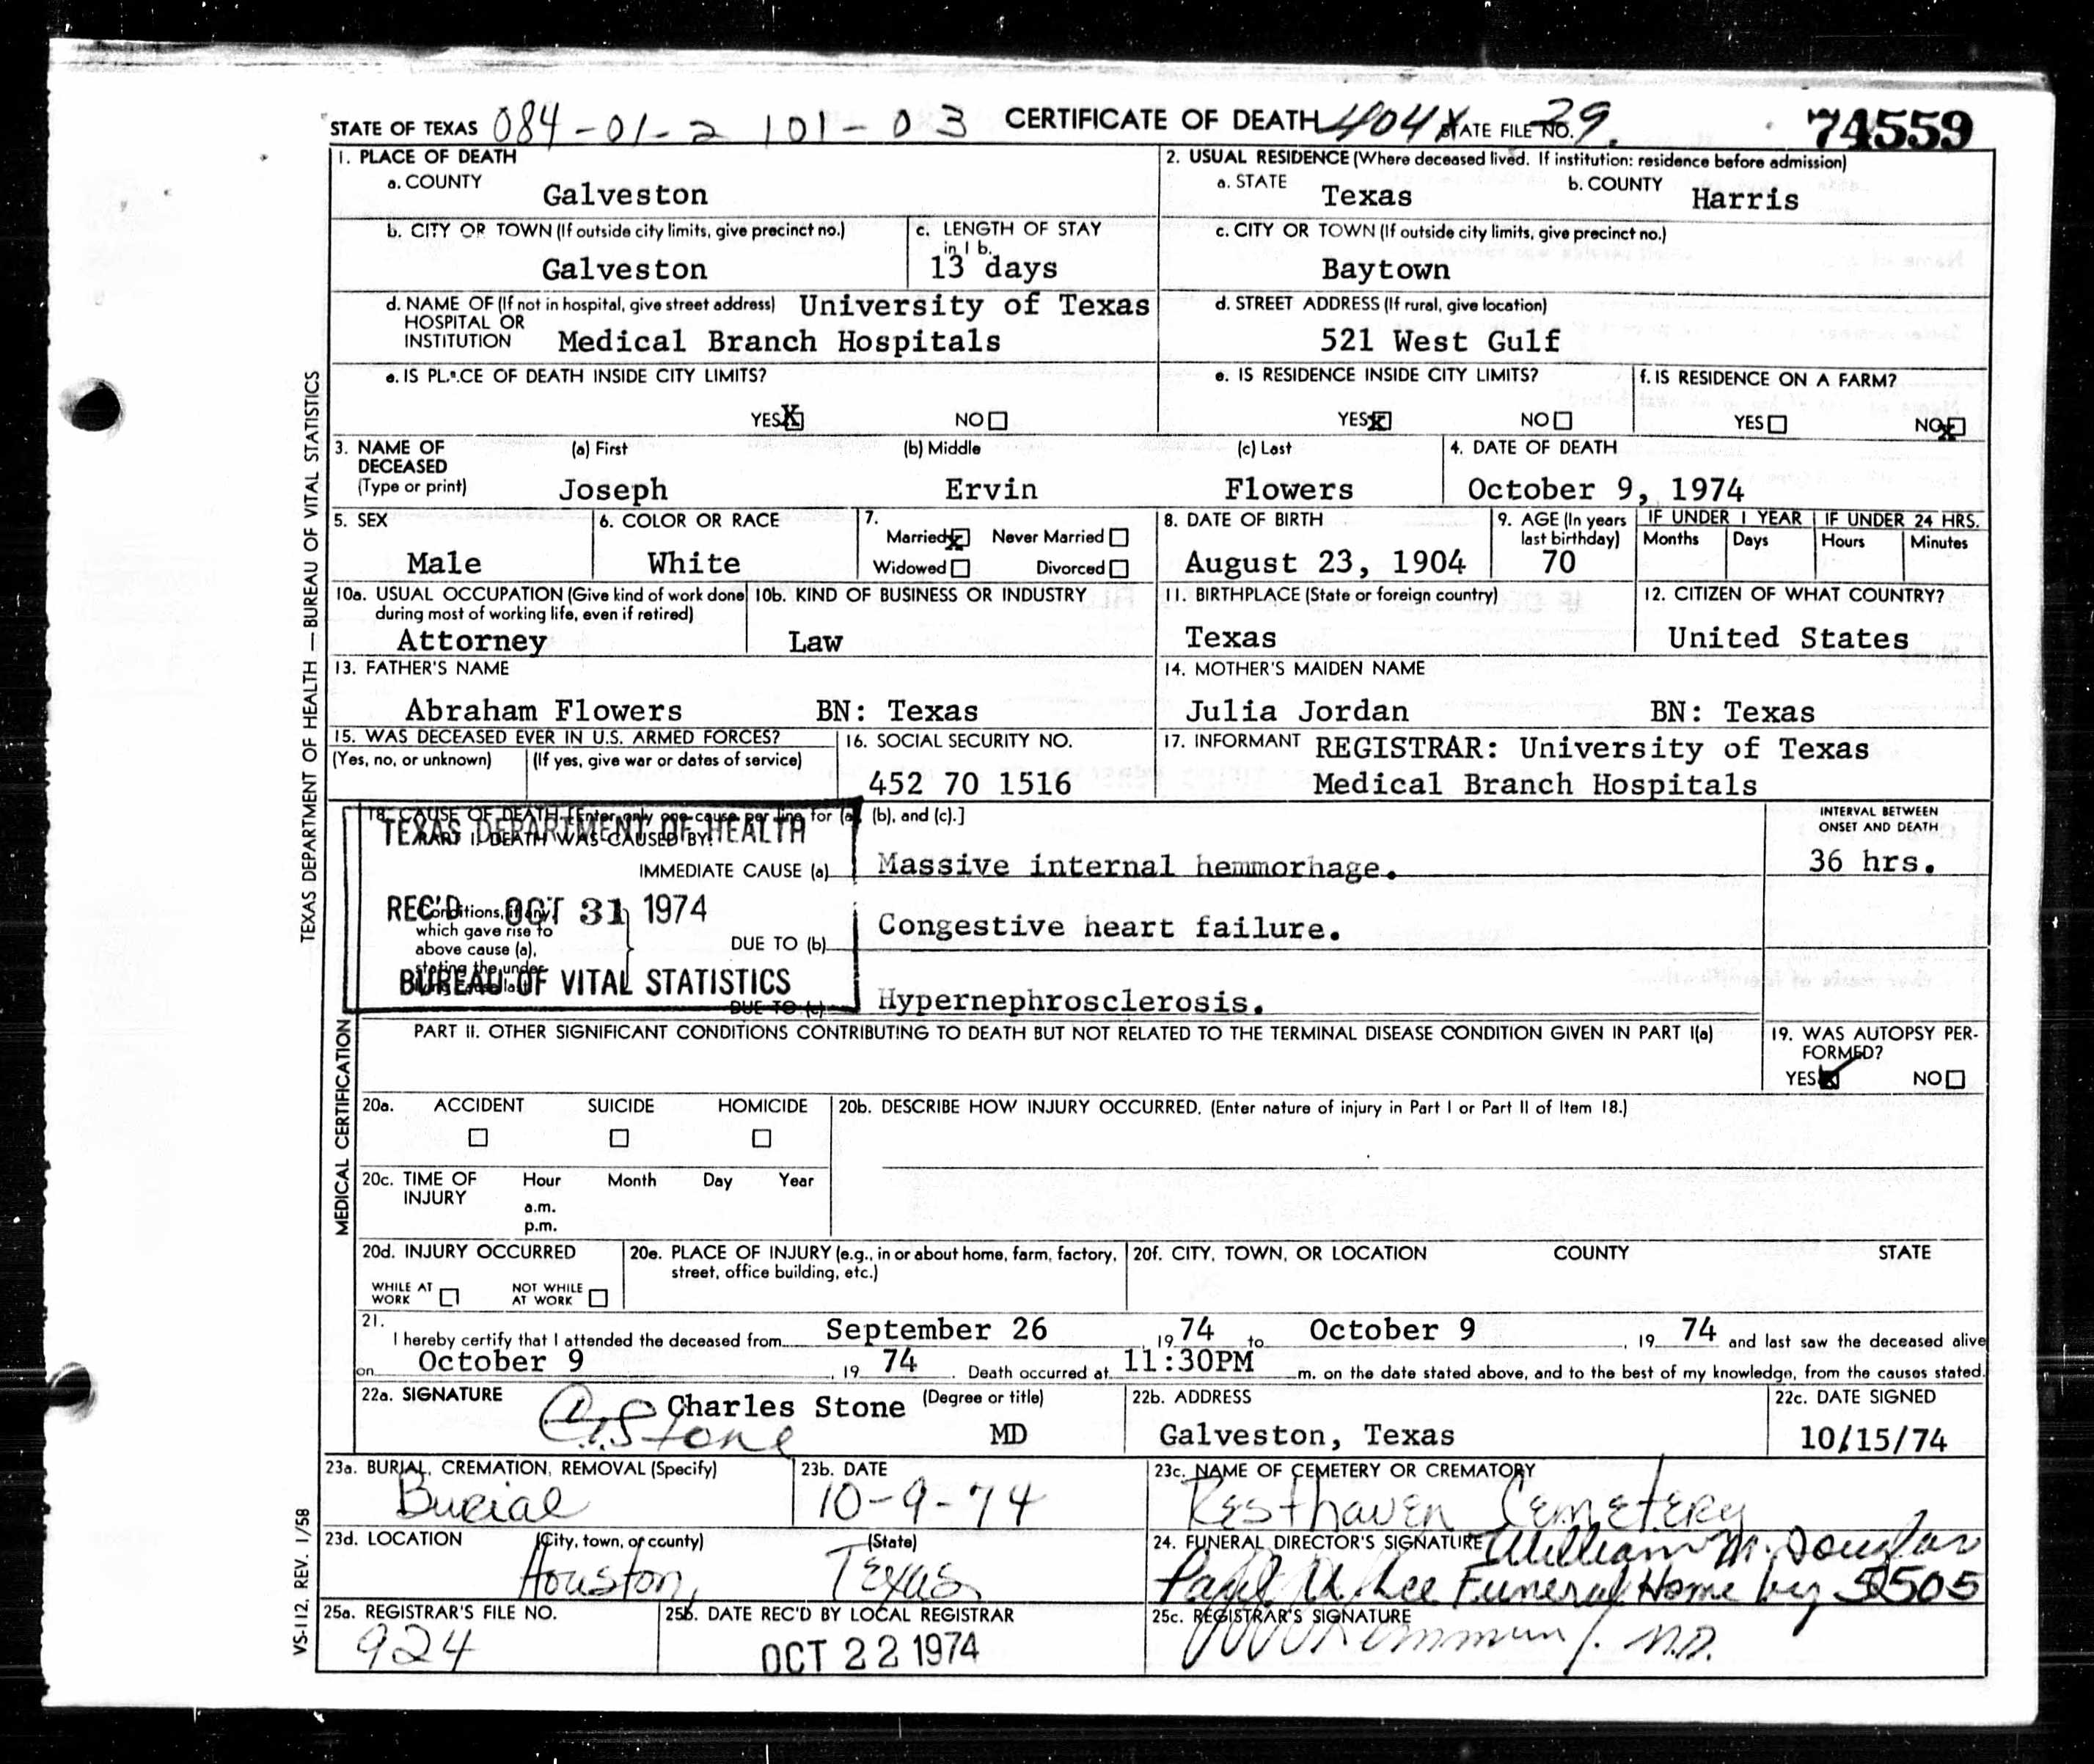 STATE OF TEXAS 084-01-2 101-03 CERTIFICATE OF DEATH 404X STATE FILE NO. 29. 74559
1. PLACE OF DEATH
a. COUNTY
Galveston
2. USUAL RESIDENCE (Where deceased lived. If institution: residence before admission)
a. STATE Texas b. COUNTY Harris
b. CITY OR TOWN (If outside city limits, give precinct no.)
Galveston
c. LENGTH OF STAY
in 1 b.
13 days
c. CITY OR TOWN (If outside city limits, give precinct no.)
Baytown
d. NAME OF (If not in hospital, give street address) University of Texas
HOSPITAL OR
INSTITUTION Medical Branch Hospitals
d. STREET ADDRESS (If rural, give location)
521 West Gulf
e. IS PLACE OF DEATH INSIDE CITY LIMITS?
YES X NO
e. IS RESIDENCE INSIDE CITY LIMITS?
YES X NO
f. IS RESIDENCE ON A FARM?
YES NO X
3. NAME OF
DECEASED
(Type or print)
(a) First (b) Middle (c) Last
Joseph Ervin Flowers
4. DATE OF DEATH
October 9, 1974
5. SEX
Male
6. COLOR OR RACE
White
7.
Married X Never Married
Widowed Divorced
8. DATE OF BIRTH
August 23, 1904
9. AGE (In years
last birthday)
70
IF UNDER 1 YEAR IF UNDER 24 HRS.
Months Days Hours Minutes
10a. USUAL OCCUPATION (Give kind of work done
during most of working life, even if retired)
Attorney
10b. KIND OF BUSINESS OR INDUSTRY
Law
11. BIRTHPLACE (State or foreign country)
Texas
12. CITIZEN OF WHAT COUNTRY?
United States
13. FATHER'S NAME
Abraham Flowers BN: Texas
14. MOTHER'S MAIDEN NAME
Julia Jordan BN: Texas
15. WAS DECEASED EVER IN U.S. ARMED FORCES?
(Yes, no, or unknown) (If yes, give war or dates of service)
16. SOCIAL SECURITY NO.
452 70 1516
17. INFORMANT REGISTRAR: University of Texas
Medical Branch Hospitals
18. CAUSE OF DEATH [Enter only one cause per line for (a), (b), and (c).]
PART I. DEATH WAS CAUSED BY:
TEXAS DEPARTMENT OF HEALTH
REC'D OCT 31 1974
BUREAU OF VITAL STATISTICS
INTERVAL BETWEEN
ONSET AND DEATH
IMMEDIATE CAUSE (a) Massive internal hemmorhage. 36 hrs.
Conditions, if any,
which gave rise to
above cause (a),
stating the under-
lying cause last.
DUE TO (b) Congestive heart failure.
DUE TO (c) Hypernephrosclerosis.
PART II. OTHER SIGNIFICANT CONDITIONS CONTRIBUTING TO DEATH BUT NOT RELATED TO THE TERMINAL DISEASE CONDITION GIVEN IN PART I(a)
19. WAS AUTOPSY PER-
FORMED?
YES X NO
20a. ACCIDENT SUICIDE HOMICIDE
20b. DESCRIBE HOW INJURY OCCURRED. (Enter nature of injury in Part I or Part II of Item 18.)
20c. TIME OF
INJURY
Hour Month Day Year
a.m.
p.m.
20d. INJURY OCCURRED
WHILE AT
WORK
NOT WHILE
AT WORK
20e. PLACE OF INJURY (e.g., in or about home, farm, factory,
street, office building, etc.)
20f. CITY, TOWN, OR LOCATION COUNTY STATE
21.
I hereby certify that I attended the deceased from September 26, 19 74 to October 9, 19 74 and last saw the deceased alive
on October 9, 19 74. Death occurred at 11:30PM m. on the date stated above, and to the best of my knowledge, from the causes stated.
22a. SIGNATURE Charles Stone (Degree or title)
C. Stone MD
22b. ADDRESS
Galveston, Texas
22c. DATE SIGNED
10/15/74
23a. BURIAL, CREMATION, REMOVAL (Specify)
Burial
23b. DATE
10-9-74
23c. NAME OF CEMETERY OR CREMATORY
Resthaven Cemetery
23d. LOCATION (City, town, or county) (State)
Houston, Texas
24. FUNERAL DIRECTOR'S SIGNATURE William M. Douglas
Paul U. Lee Funeral Home by 5505
25a. REGISTRAR'S FILE NO.
924
25b. DATE REC'D BY LOCAL REGISTRAR
OCT 22 1974
25c. REGISTRAR'S SIGNATURE
M.D.
TEXAS DEPARTMENT OF HEALTH — BUREAU OF VITAL STATISTICS
MEDICAL CERTIFICATION
VS-112, REV. 1/58